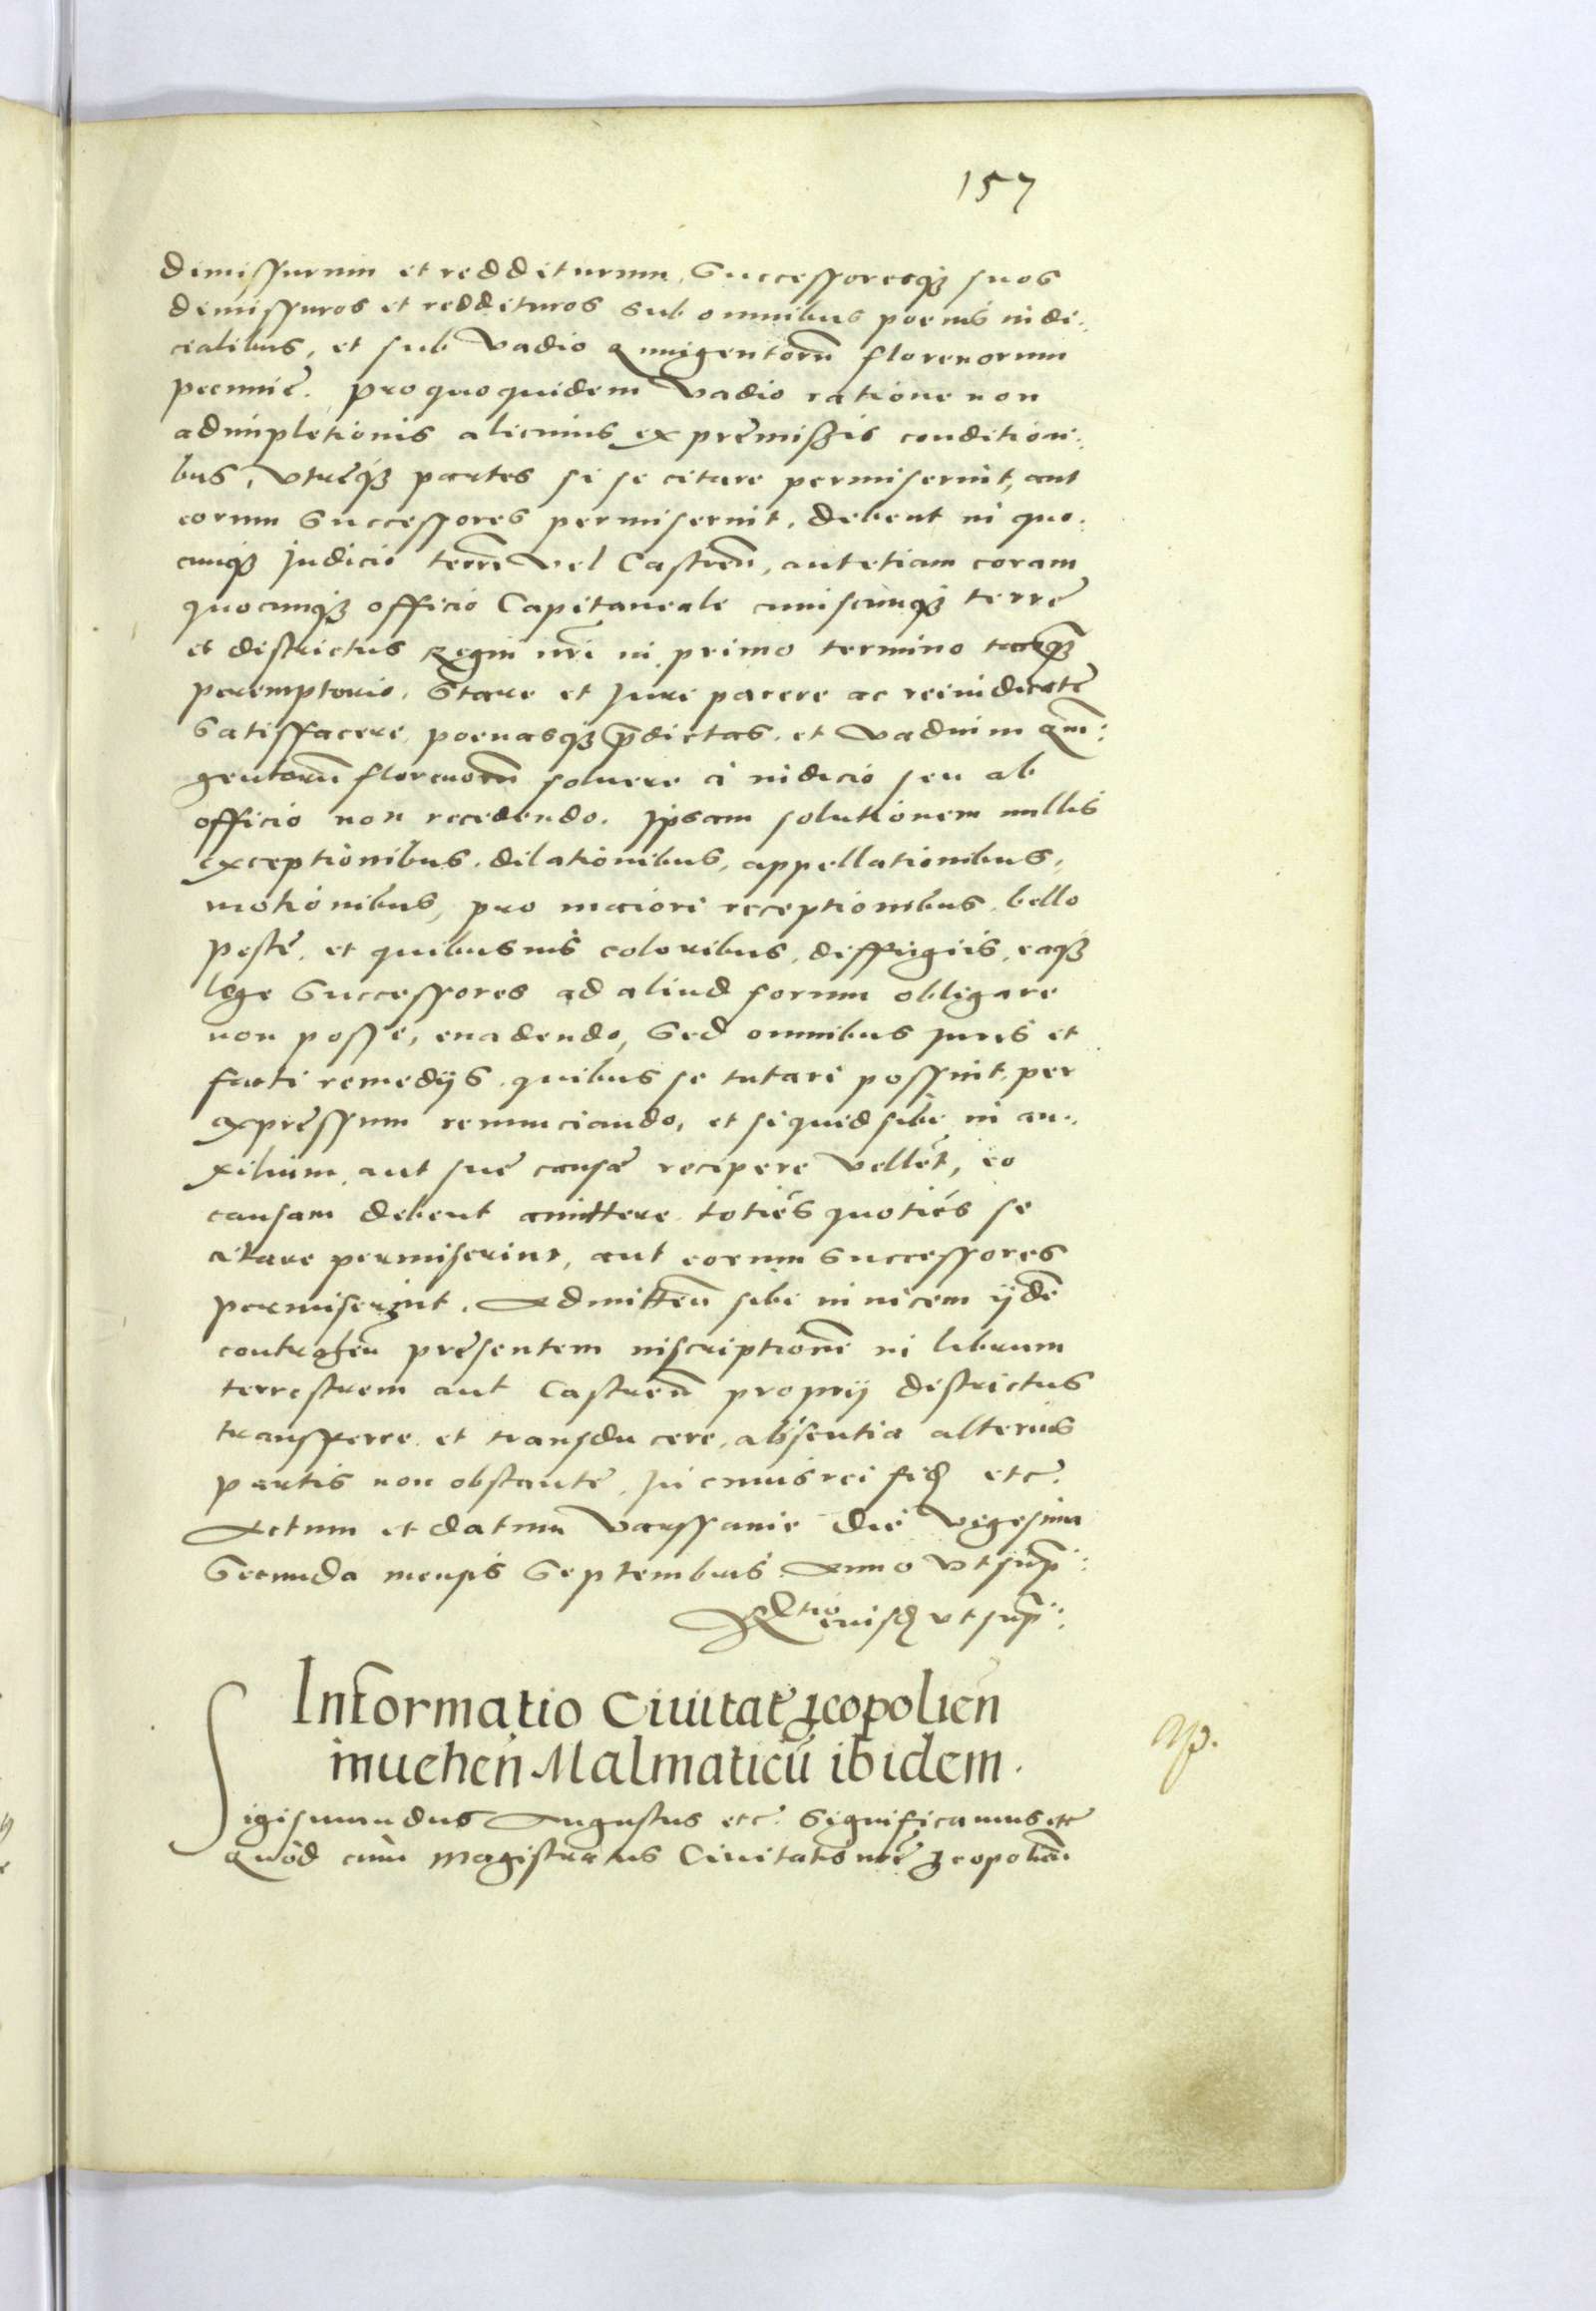 157
dimissurum et redditurum, Successoresq3 suos
dimissuros et reddituros sub omnibus poenis iudi:
cialibus, et sub Vadio Quingentorū florenorum
pecunię. pro quo quidem Vadio ratione non
adimpletionis alicuius ex pręmissis condition:
bus, Vtręq3 partes si se citare permiserint, aut
eorum Successores permiserint, debent in quo:
cunq3 Judicio terrē Vel Castreñ, aut etiam coram
quocunq3 officio Capitaneale cuiuscunq3 terrę
et districtus Regni nrī in primo termino tanq3
peremptorio, Stare et Jure parere ac rei iudicatę
Satisffacere, poenasq3 p̄dictas, et Vadium Quin:
gentorū florenorū soluere à iudicio seu ab
officio non recedendo. Ipsam solutionem nullis
exceptionibus, dilationibus, appellationibus,
motionibus, pro maiori receptionibus, bello
peste, et quibusuis coloribus, diffugiis, eaq3
lege Successores ad aliud forum obligare
non posse, euadendo, Sed omnibus Juris et
facti remedijs quibus se tutari possint, per
expressum renunciando, et si quid sibi in au:
xilium, aut suę causę recipere Vellēt, eo
causam debent amittere toties quoties se
citare permiserint, aut eorum Successores
permiserint. Admitteñ sibi inuicem ijdē
contraheñ pręsentem inscriptionē in librum
terrestrem aut Castreñ proprij districtus
transfferre et transducere, absentia alterius
partis non obstante. In cuius rei fid etc.
Actum et datum Varssauię die Vigesima
Secunda mensis Septembris Anno Vt sup:
Rltio eiusd vt sup:
Informatio Ciuitatę Leopolieñ
inueheñ Malmaticū ibidem.
Sigismundus Augustus etc. Significamus etc
Quòd cùm Magistratus Ciuitatis nrę Leopolieñ